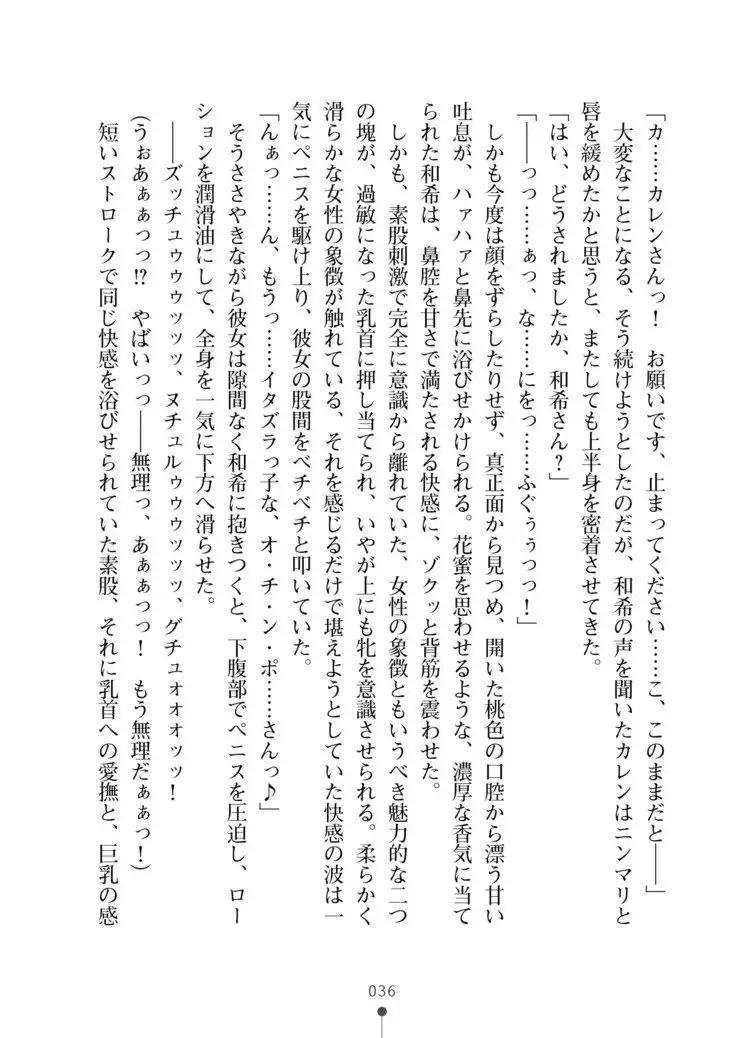 「カ……カレンさんっ！　お願いです、止まってください……こ、このままだと――」
　大変なことになる、そう続けようとしたのだが、和希の声を聞いたカレンはニンマリと
唇を緩めたかと思うと、またしても上半身を密着させてきた。
「はい、どうされましたか、和希さん？」
「――っっ……ぁっ、な……にをっ……ふぐぅぅっっ！」
　しかも今度は顔をずらしたりせず、真正面から見つめ、開いた桃色の口腔から漂う甘い
吐息が、ハァハァと鼻先に浴びせかけられる。花蜜を思わせるような、濃厚な香気に当て
られた和希は、鼻腔を甘さで満たされる快感に、ゾクッと背筋を震わせた。
　しかも、素股刺激で完全に意識から離れていた、女性の象徴ともいうべき魅力的な二つ
の塊が、過敏になった乳首に押し当てられ、いやが上にも牝を意識させられる。柔らかく
滑らかな女性の象徴が触れている、それを感じるだけで堪えようとしていた快感の波は一
気にペニスを駆け上り、彼女の股間をベチベチと叩いていた。
「んぁっ……ん、もうっ……イタズラっ子な、オ・チ・ン・ポ……さんっ♪」
　そうささやきながら彼女は隙間なく和希に抱きつくと、下腹部でペニスを圧迫し、ロー
ションを潤滑油にして、全身を一気に下方へ滑らせた。
　――ズッチュゥゥゥッッッ、ヌチュルゥゥゥッッッ、グチュォォォッッ！
(うぉあぁぁっっ!?　やばいっっ――無理っ、あぁぁっっ！　もう無理だぁぁっ！)
　短いストロークで同じ快感を浴びせられていた素股、それに乳首への愛撫と、巨乳の感
036